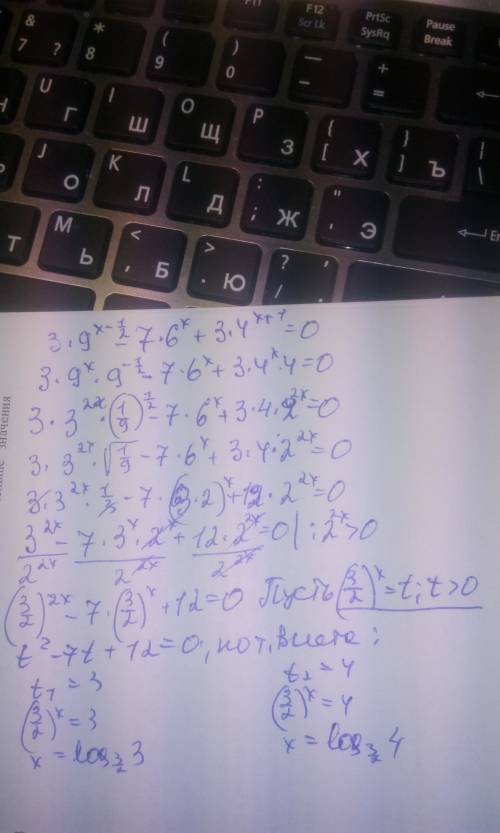 F11
F12
Scr Lk
PrtSc
SysRq
Pause
Break
& 7 ?
* 8
( 9
) 0
— –
+ =
U Г
I Ш
O Щ
P З
{ [ Х
} ] Ъ
| \
J О
K Л
L Д
: ; Ж
" ' Э
En
Т
M Ь
< , Б
> . Ю
? / .
значения
3·9^{x-\frac{1}{2}} - 7·6^x + 3·4^{x+1} = 0
3·9^x·9^{-\frac{1}{2}} - 7·6^x + 3·4^x·4 = 0
3·3^{2x}·(\frac{1}{9})^{\frac{1}{2}} - 7·6^x + 3·4·2^{2x} = 0
3·3^{2x}·\sqrt{\frac{1}{9}} - 7·6^x + 3·4·2^{2x} = 0
3·3^{2x}·\frac{1}{3} - 7·(3·2)^x + 12·2^{2x} = 0
\frac{3^{2x}}{2^{2x}} - \frac{7·3^x·2^x}{2^{2x}} + \frac{12·2^{2x}}{2^{2x}} = 0 | :2^{2x} > 0
(\frac{3}{2})^{2x} - 7·(\frac{3}{2})^x + 12 = 0 Пусть (\frac{3}{2})^x = t; t > 0
t^2 - 7t + 12 = 0, по т. Виета:
t_1 = 3 t_2 = 4
(\frac{3}{2})^x = 3 (\frac{3}{2})^x = 4
x = log_{\frac{3}{2}} 3 x = log_{\frac{3}{2}} 4